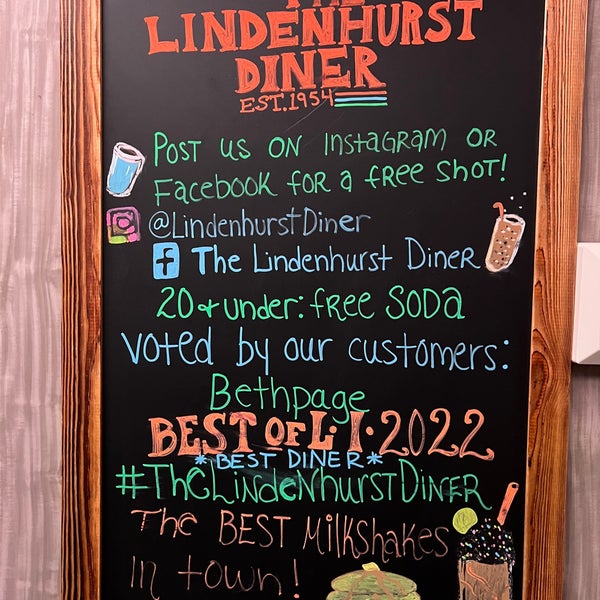 THE
LINDENHURST
DINER
EST. 1954
POST US ON INSTAGRAM OR
FACEBOOK FOR A FREE SHOT!
@LindenhurstDiner
f The Lindenhurst Diner
20 & under: free SODA
Voted by our customers:
Bethpage
BEST OF L.I. 2022
*BEST DINER*
#TheLindenhurstDiner
The BEST Milkshakes
in town!